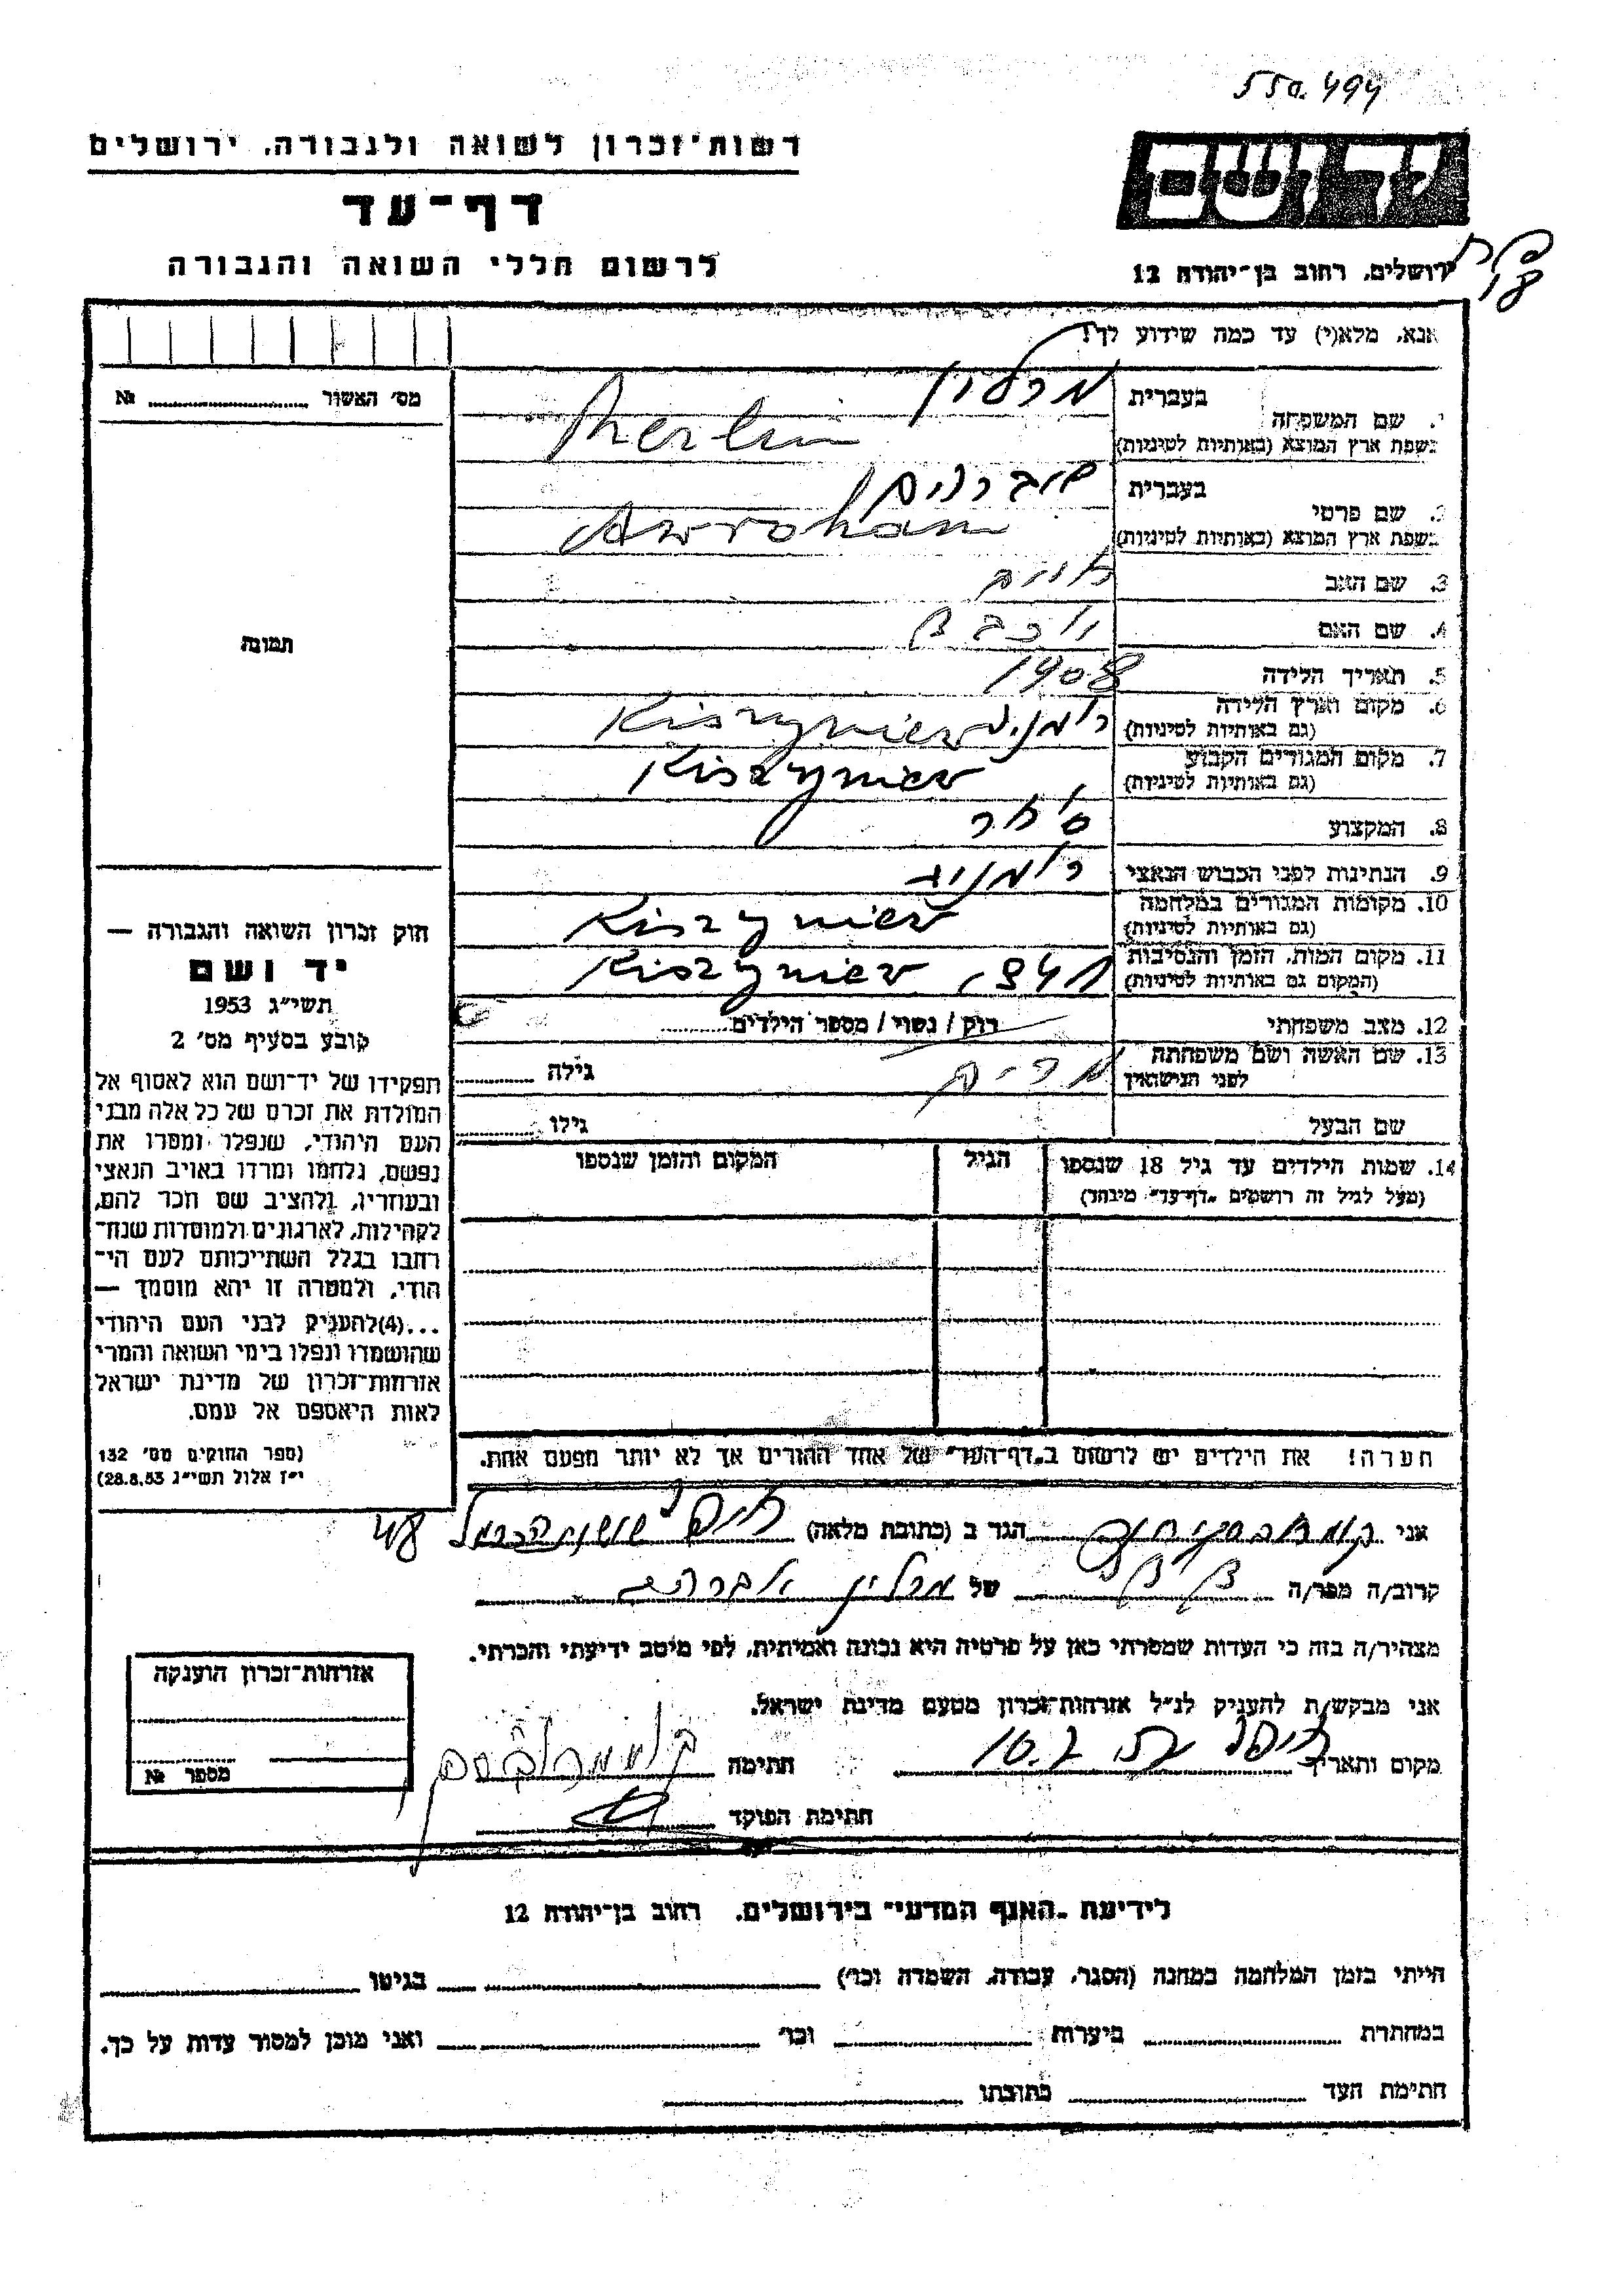 550.494
רשות־זכרון לשואה ולגבורה, ירושלים
ידושם
דף־עד
לרשום חללי השואה והגבורה
ירושלים, רחוב בן־יהודה 12
אנא, מלא(י) עד כמה שידוע לך!
מס' האשור № 
1. שם המשפחה בעברית מרלין
בשפת ארץ המוצא (באותיות לטיניות) Merlin
2. שם פרטי בעברית אברהם
בשפת ארץ המוצא (באותיות לטיניות) Awroham
3. שם האב חיים
4. שם האם
5. תאריך הלידה 1908
6. מקום וארץ הלידה
(גם באותיות לטיניות) רומניה Kiszyniew
7. מקום המגורים הקבוע
(גם באותיות לטיניות) Kiszyniew
8. המקצוע סוחר
9. הנתינות לפני הכבוש הנאצי רומניה
10. מקומות המגורים במלחמה
(גם באותיות לטיניות) Kiszyniew
11. מקום המות, הזמן והנסיבות
(המקום גם באותיות לטיניות) Kiszyniew
12. מצב משפחתי רווק / נשוי / מספר הילדים
13. שם האשה ושם משפחתה
לפני הנישואין מרים גילה
שם הבעל גילו
14. שמות הילדים עד גיל 18 שנספו הגיל המקום והזמן שנספו
(מעל לגיל זה רושמים "דף־עד" מיוחד)
הערה! את הילדים יש לרשום ב"דף־העד" של אחד ההורים אך לא יותר מפעם אחת.
תמונה
חוק זכרון השואה והגבורה —
יד ושם
תשי"ג 1953
קובע בסעיף מס' 2
תפקידו של יד־ושם הוא לאסוף אל
המולדת את זכרם של כל אלה מבני
העם היהודי, שנפלו ומסרו את
נפשם, נלחמו ומרדו באויב הנאצי
ובעוזריו, ולהציב שם וזכר להם,
לקהילות, לארגונים ולמוסדות שנח־
רבו בגלל השתייכותם לעם הי־
הודי, ולמטרה זו יהא מוסמך —
...(4) להעניק לבני העם היהודי
שהושמדו ונפלו בימי השואה והמרי
אזרחות־זכרון של מדינת ישראל
לאות היאספם אל עמם.
(ספר החוקים מס' 132
י"ז אלול תשי"ג 28.8.53)
אני הגר ב (כתובת מלאה) חיפה
קרוב/ה מכר/ה של מרלין אברהם
מצהיר/ה בזה כי העדות שמסרתי כאן על פרטיה היא נכונה ואמיתית, לפי מיטב ידיעתי והכרתי.
אני מבקש/ת להעניק לנ"ל אזרחות־זכרון מטעם מדינת ישראל.
מקום ותאריך חיפה חתימה
חתימת הפוקד
אזרחות־זכרון הוענקה
מספר №
לידיעת "האגף המדעי" בירושלים, רחוב בן־יהודה 12
הייתי בזמן המלחמה במחנה (הסגר, עבודה, השמדה וכו') בגיטו
במחתרת ביערות וכו' ואני מוכן למסור עדות על כך.
חתימת העד כתובתו